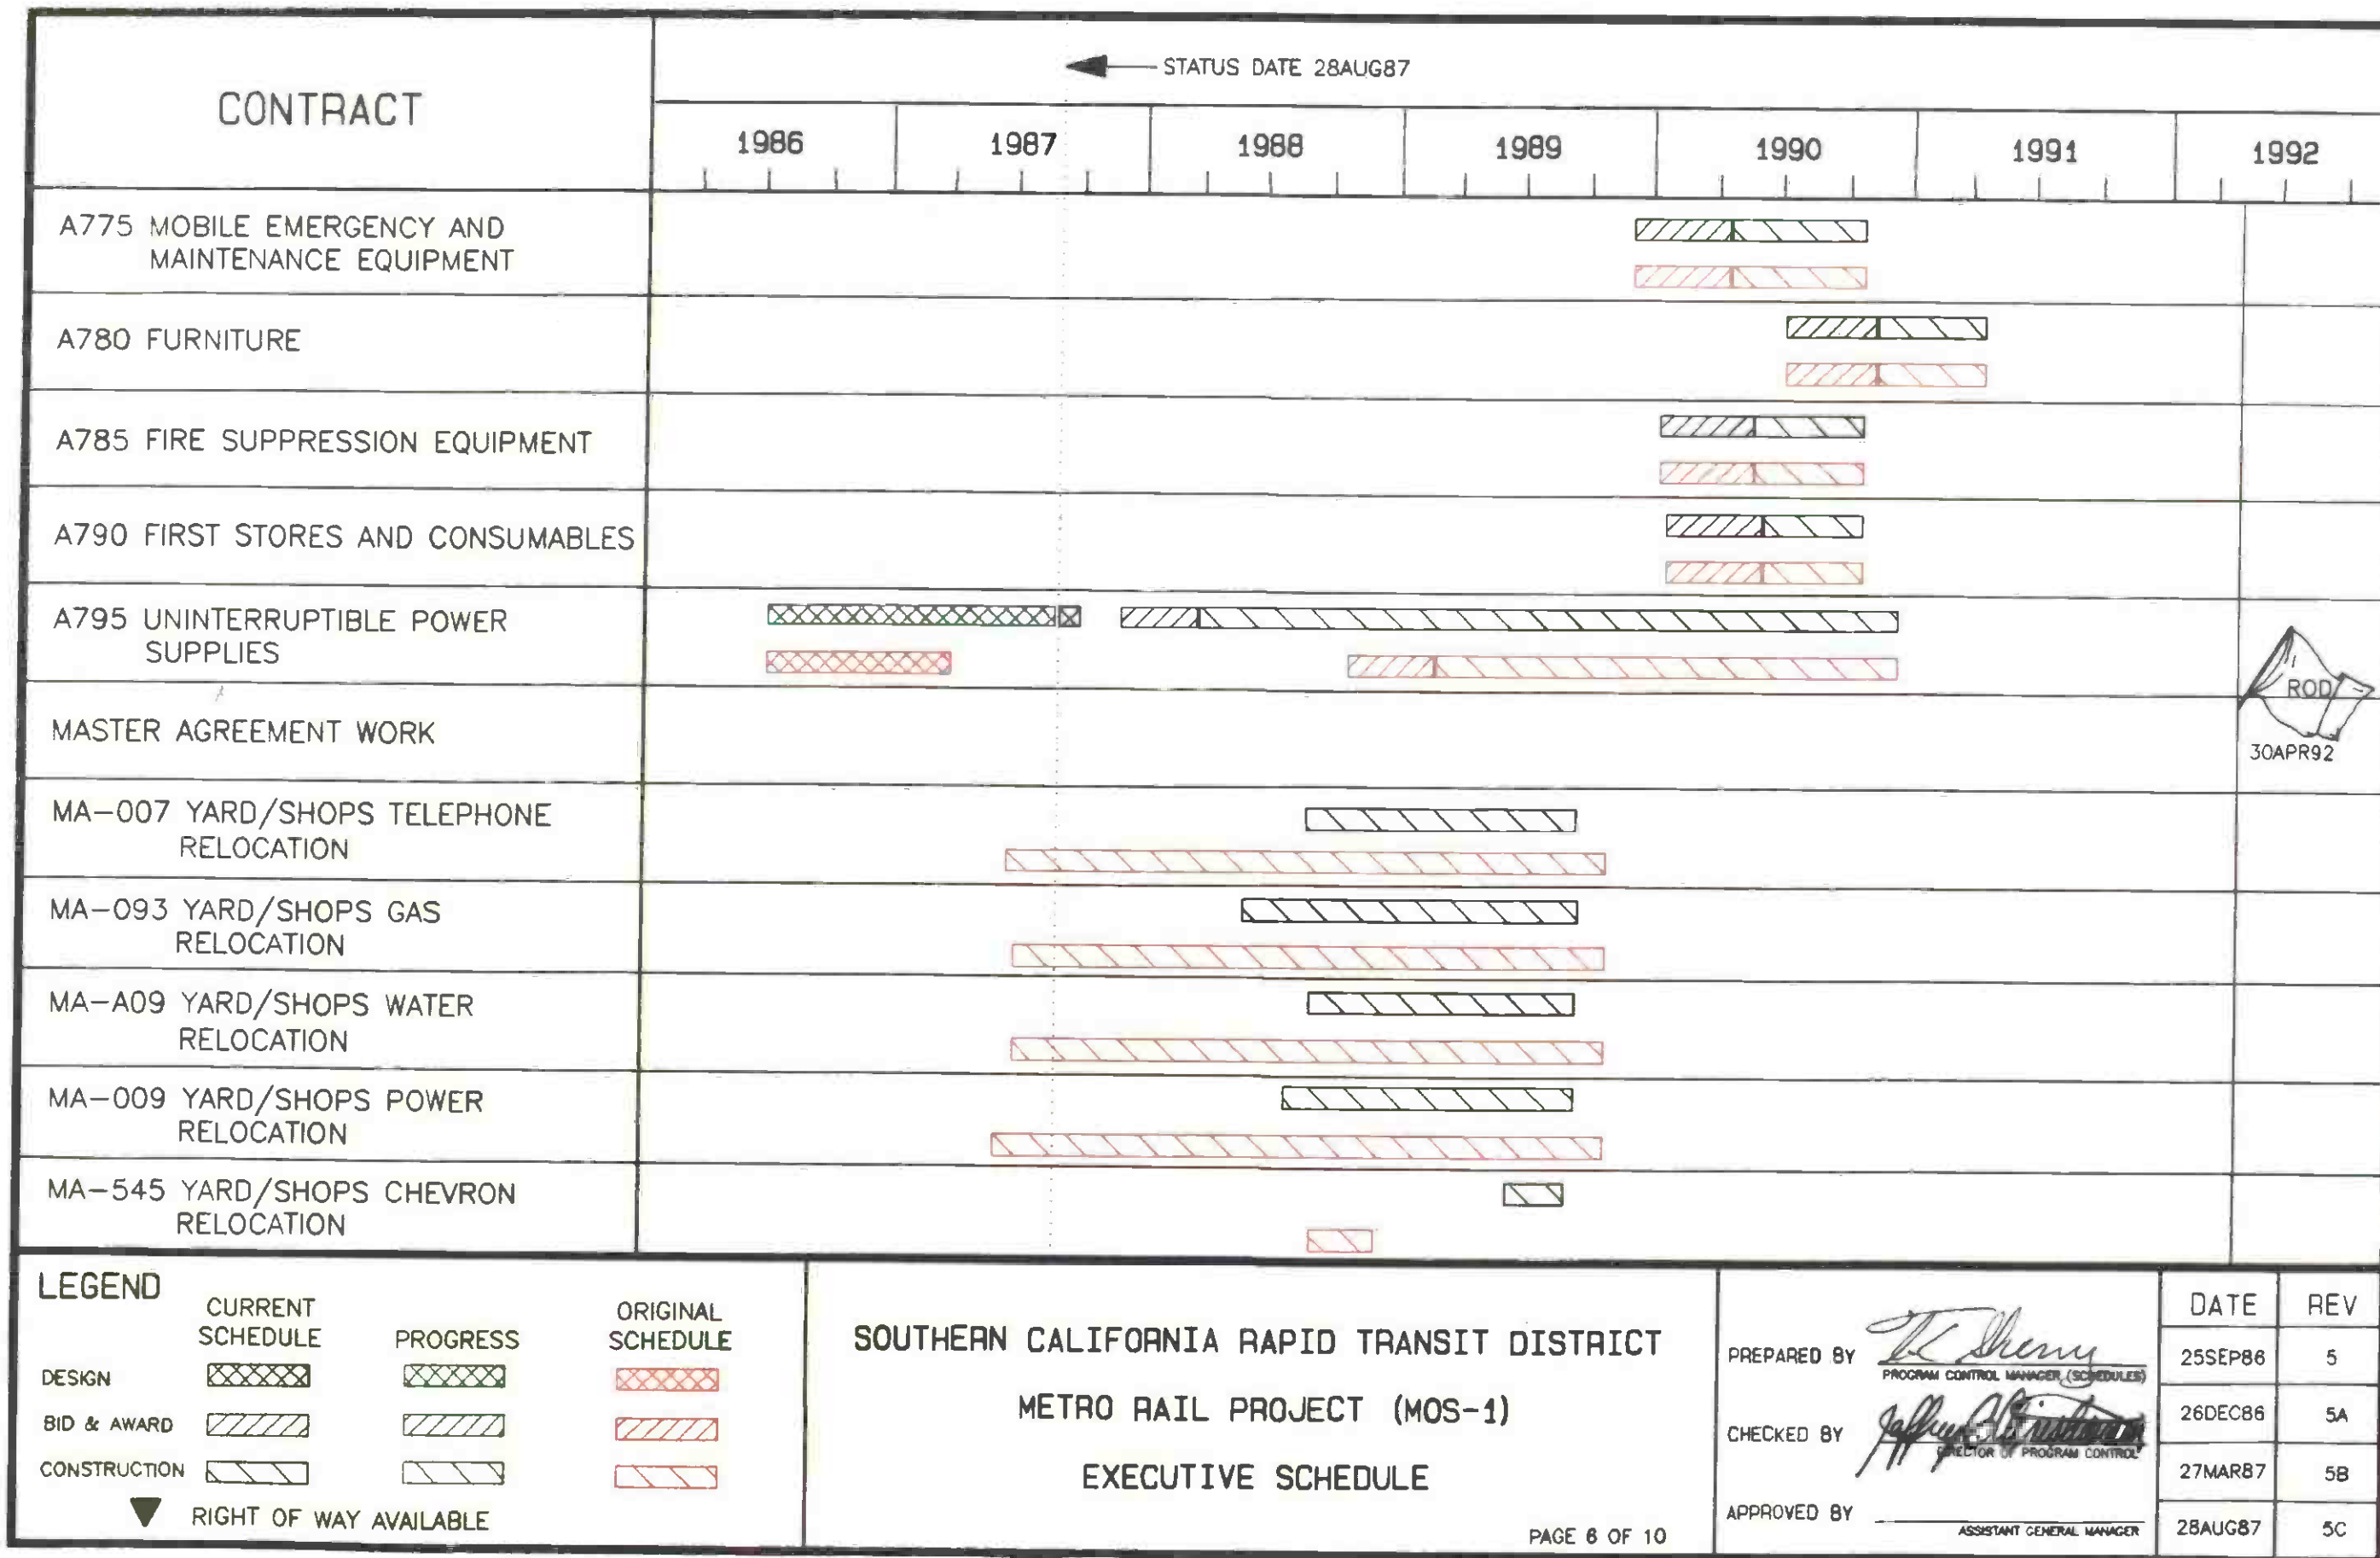 CONTRACT
STATUS DATE 28AUG87
1986 1987 1988 1989 1990 1991 1992
A775 MOBILE EMERGENCY AND
MAINTENANCE EQUIPMENT
A780 FURNITURE
A785 FIRE SUPPRESSION EQUIPMENT
A790 FIRST STORES AND CONSUMABLES
A795 UNINTERRUPTIBLE POWER
SUPPLIES
ROD
30APR92
MASTER AGREEMENT WORK
MA-007 YARD/SHOPS TELEPHONE
RELOCATION
MA-093 YARD/SHOPS GAS
RELOCATION
MA-A09 YARD/SHOPS WATER
RELOCATION
MA-009 YARD/SHOPS POWER
RELOCATION
MA-545 YARD/SHOPS CHEVRON
RELOCATION
LEGEND
CURRENT
SCHEDULE
PROGRESS
ORIGINAL
SCHEDULE
DESIGN
BID & AWARD
CONSTRUCTION
RIGHT OF WAY AVAILABLE
SOUTHERN CALIFORNIA RAPID TRANSIT DISTRICT
METRO RAIL PROJECT (MOS-1)
EXECUTIVE SCHEDULE
PAGE 6 OF 10
PREPARED BY
PROGRAM CONTROL MANAGER (SCHEDULES)
CHECKED BY
DIRECTOR OF PROGRAM CONTROL
APPROVED BY
ASSISTANT GENERAL MANAGER
DATE REV
25SEP86 5
26DEC86 5A
27MAR87 5B
28AUG87 5C